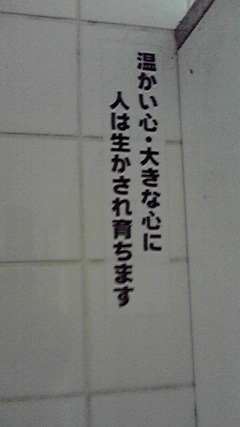 温かい心・大きな心に
人は生かされ育ちます